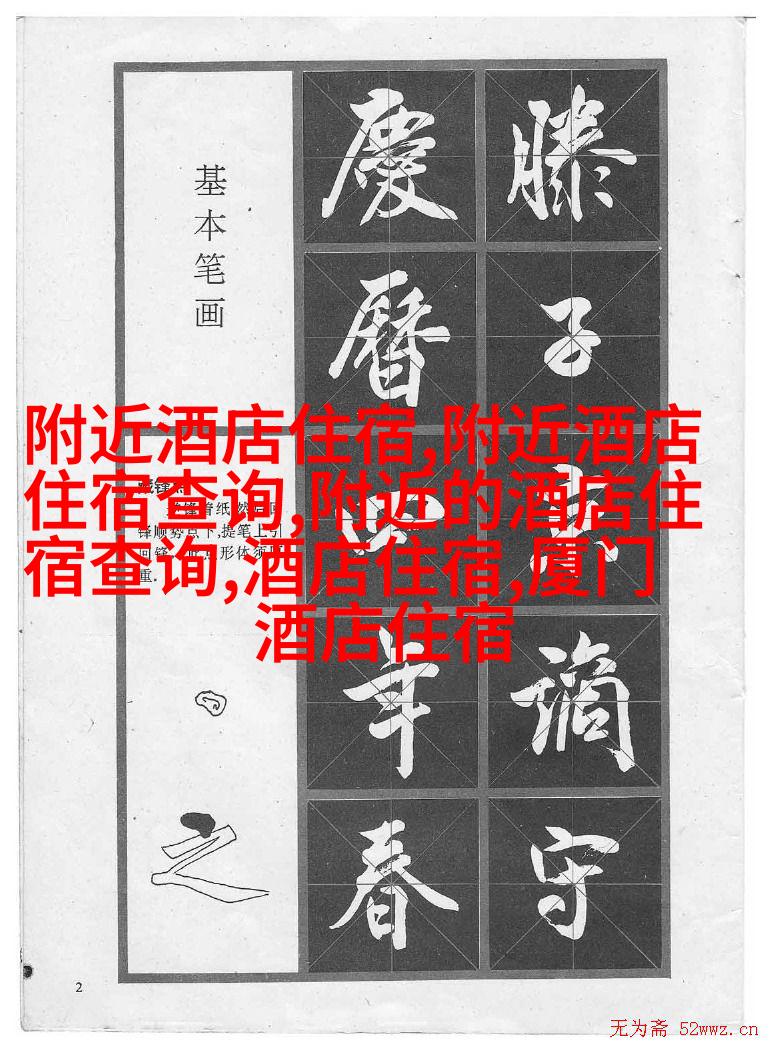 基本笔画
慶曆四年春
滕子京谪守
附近酒店住宿,附近酒店
住宿查询,附近的酒店住
宿查询,酒店住宿,厦门
酒店住宿
锋顺势点下,提笔上引
重.
之
2
无为斋 52wwz.cn